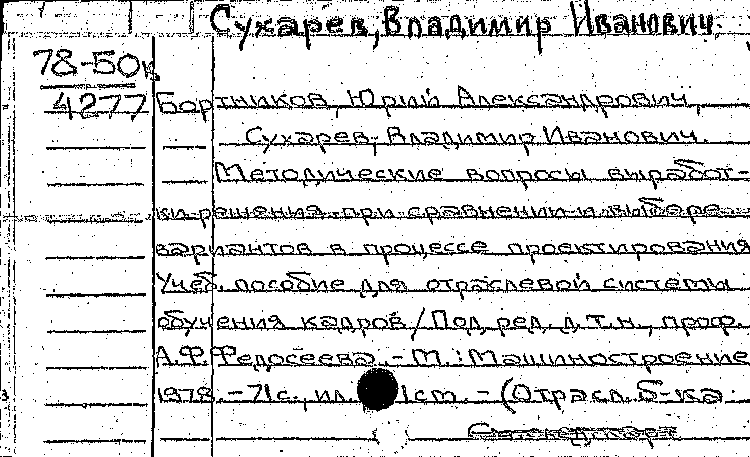 Сухарев, Владимир Иванович.
78-50к
4277
Бортников, Юрий Александрович,
Сухарев, Владимир Иванович.
Методические вопросы выработ-
ки решения при сравнении и выборе
вариантов в процессе проектирования
Учеб. пособие для отраслевой системы
обучения кадров/Под ред. д.т.н., проф.
А.Ф. Федосеева. - М.: Машиностроение
1978. - 71с., ил. 1см. - (Отрасл. б-ка